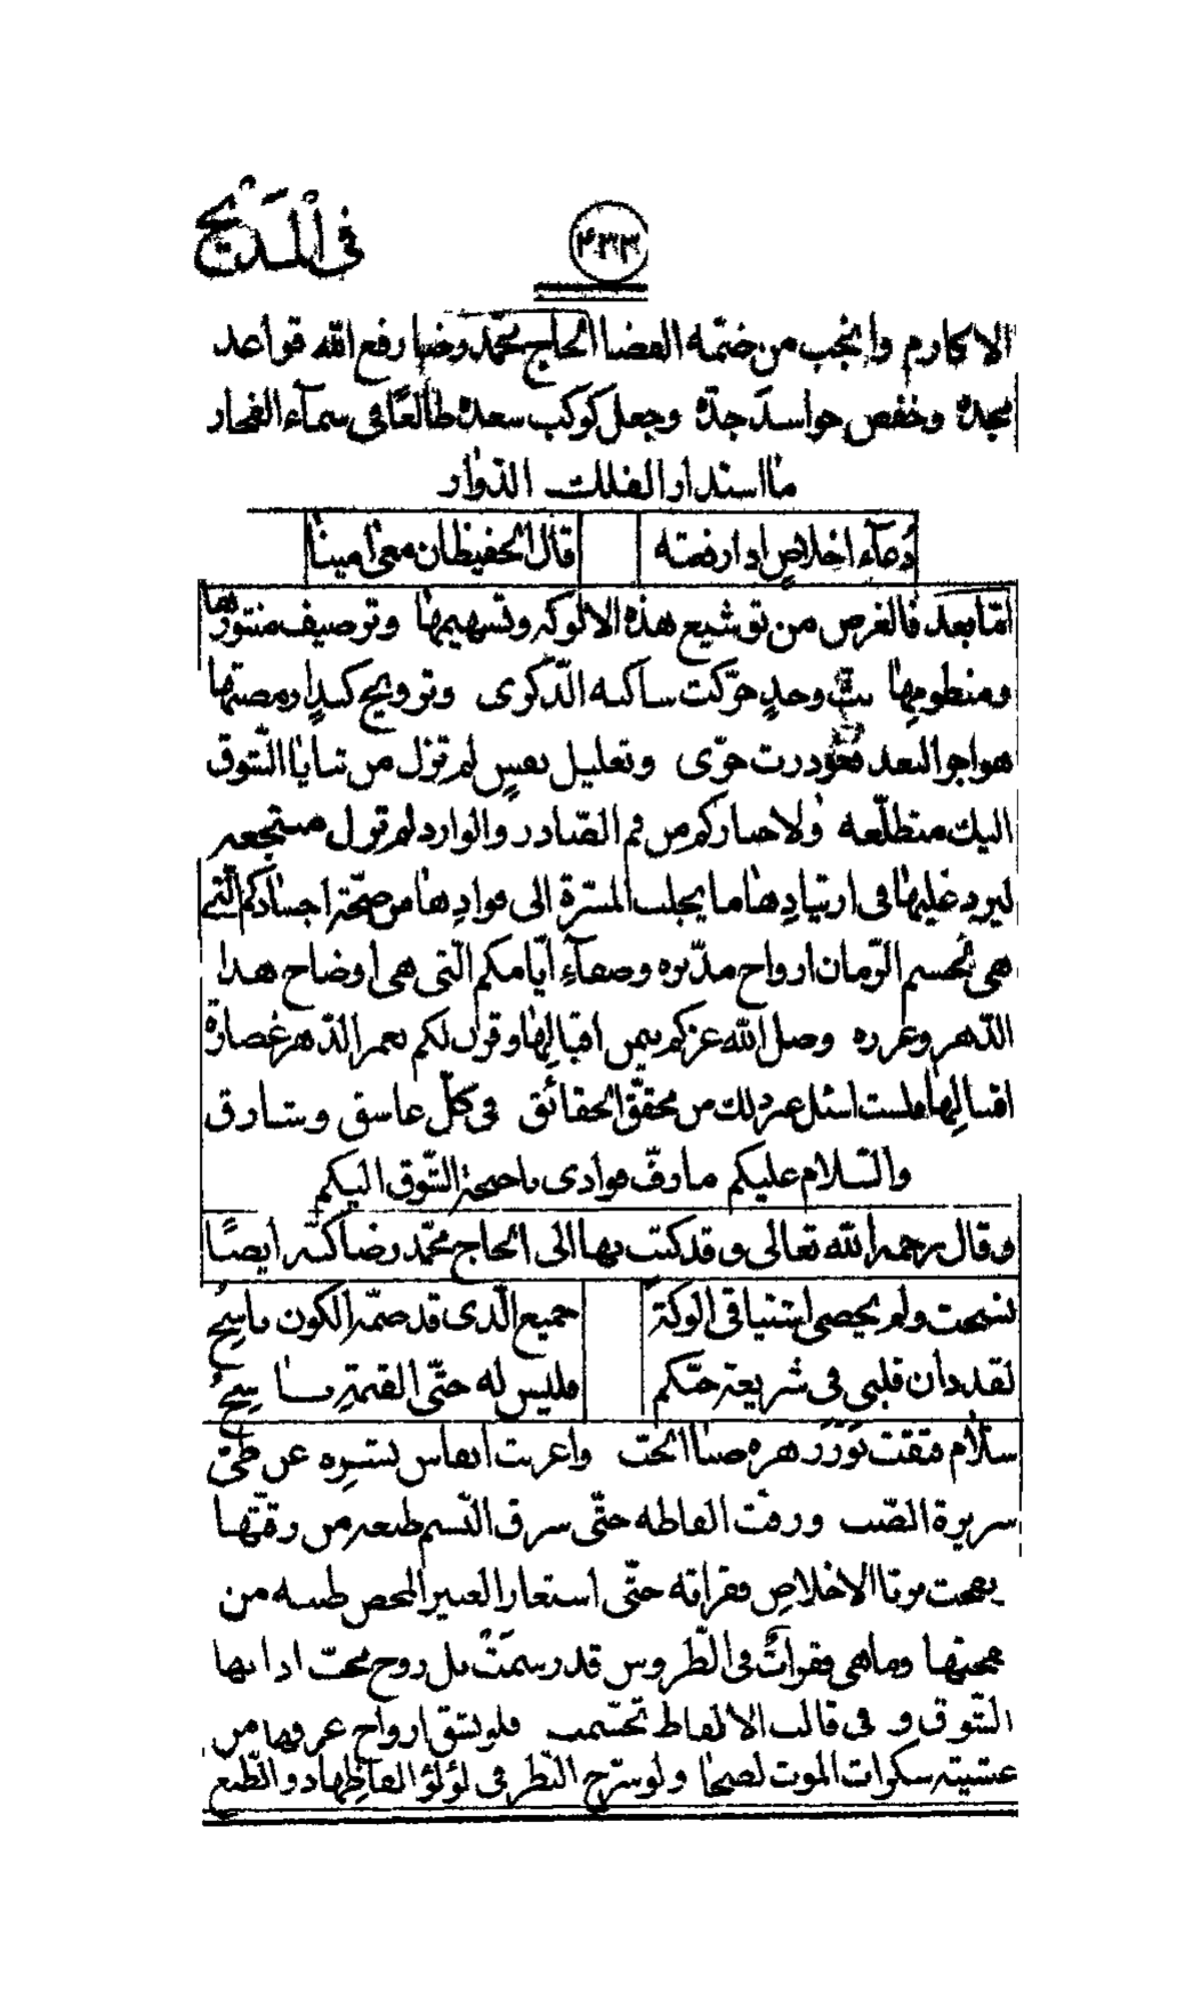 في المديح
۴۳۳
الاكارم وانجب من ضمّه الفضا الحاج محمّد رضا رفع الله قواعد
مجده وخفض حواسد جدّه وجعل كوكب سعده طالعًا في سمآء الفخار
ما استدار الفلك الدّوار
دُعآء اخلاصٍ اذا رفعته
قال الحفيظان معى امينا
امّا بعد فالغرض من توشيع هذه الالوكه وتسهيمها وترصيف منثورها
ومنظومها بثّ وجدٍ حرّكت ساكنه الذّكرى وترويح كبدٍ
هواجر البعد حرّى وتعليل نفسٍ لم تزل من ثنايا الشّوق
اليك متطلّعه ولاخباركم من فم الصّادر والوارد لم تزل
ليرد عليها في ارتيادها ما يجلب المسّرة الى فوادها من صحّة اجسادكم الّتي
هي لجسم الزّمان ارواح مدّبره وصفآء ايّامكم الّتى هي اوضاح هذا
الدّهر وغرره وصل الله عزكم بيمن اقبالها وقرن لكم بعمر الدّهر غضارة
اقبالها فلست اسئل غير ذلك من محقّق الحقائق في كلّ غاسق وشارق
والسّلام عليكم ما رفّ فوادى باجنحة الشّوق اليكم
وقال رحمه الله تعالى وقد كتب بها الى الحاج محمّد رضا كبّه ايضًا
نسخت ولم يحصى اشتياقي الوكةً
جميع الّذى قد ضمّه الكون ناسِخُ
لقد دان قلبي في شريعة حبّكم
فليس له حتّى القيمة ناسِخُ
سلام تفتّقت نَوْر زهره صبا الحبّ واعربت انفاس نشره عن طىّ
سريرة الصّب ورقّت الفاظه حتّى سرق النّسيم طبعه من رقّتها
الاخلاص فقراته حتّى استعار العبير المحض طيبه من
وما هي فقراتٌ في الطّروس قد رسمَتْ بل روح محبّ اذابها
الشّوق و في قالب الالفاظ تجسّمت فلو نشق ارواح عرفها من
غشيته سكرات الموت لصحا ولو سرّح النّظر في لؤلؤ الفاظها ذو الطّبع